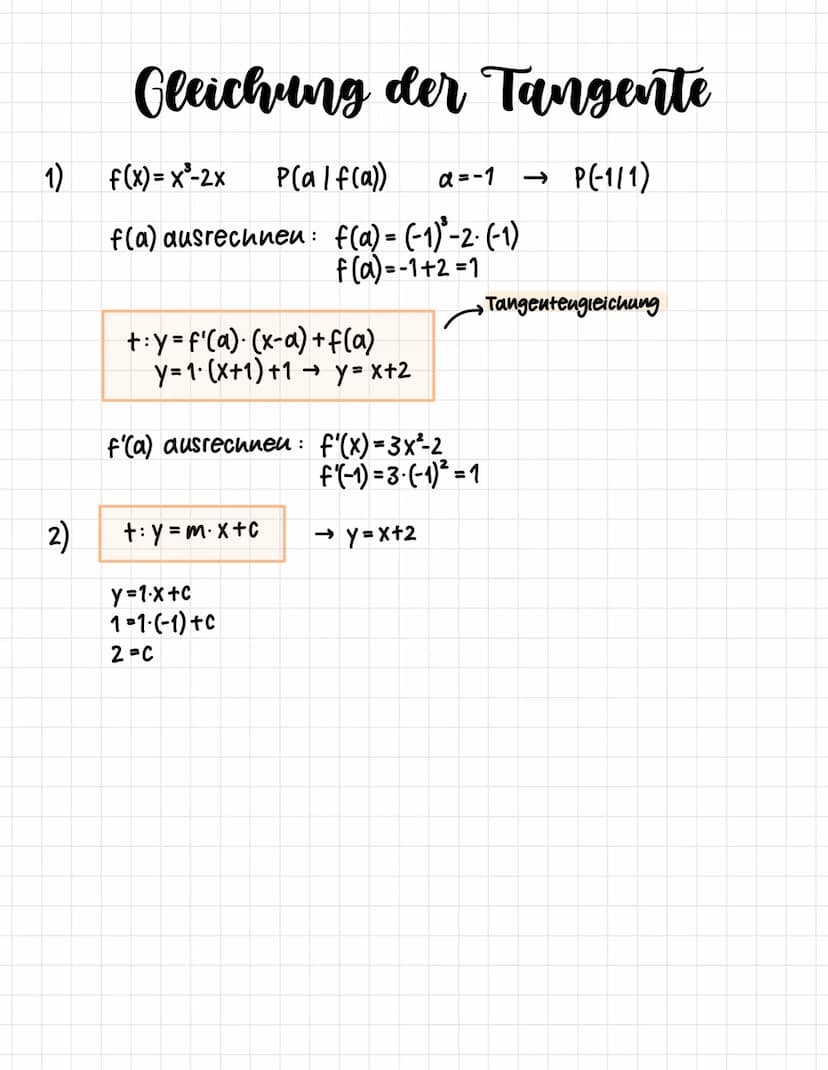 Gleichung der Tangente
1) f(x)=x³-2x P(a|f(a)) a=-1 → P(-1|1)
f(a) ausrechnen: f(a)=(-1)³-2·(-1)
f(a)=-1+2=1
Tangentengleichung
t:y=f'(a)·(x-a)+f(a)
y=1·(x+1)+1 → y=x+2
f'(a) ausrechnen: f'(x)=3x²-2
f'(-1)=3·(-1)²=1
2) t:y=m·x+c → y=x+2
y=1·x+c
1=1·(-1)+c
2=c